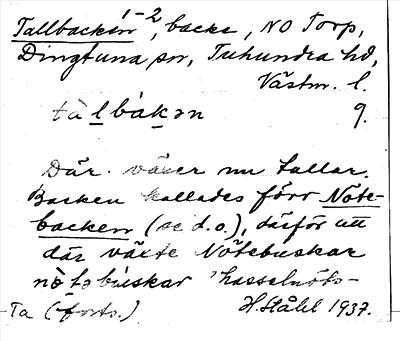 Tallbacken 1-2, backe, NO Torp,
Dingtuna sn, Tuhundra hd,
Västm. l.
tàl̲bák̲ən 9.
Där växer nu tallar.
Backen kallades förr Nöte-
backen (se d.o.), därför att
där växte Nötebuskar
nö̀təbúskar 'hasselnöts-
Ta (forts.) H. Ståhl 1937.